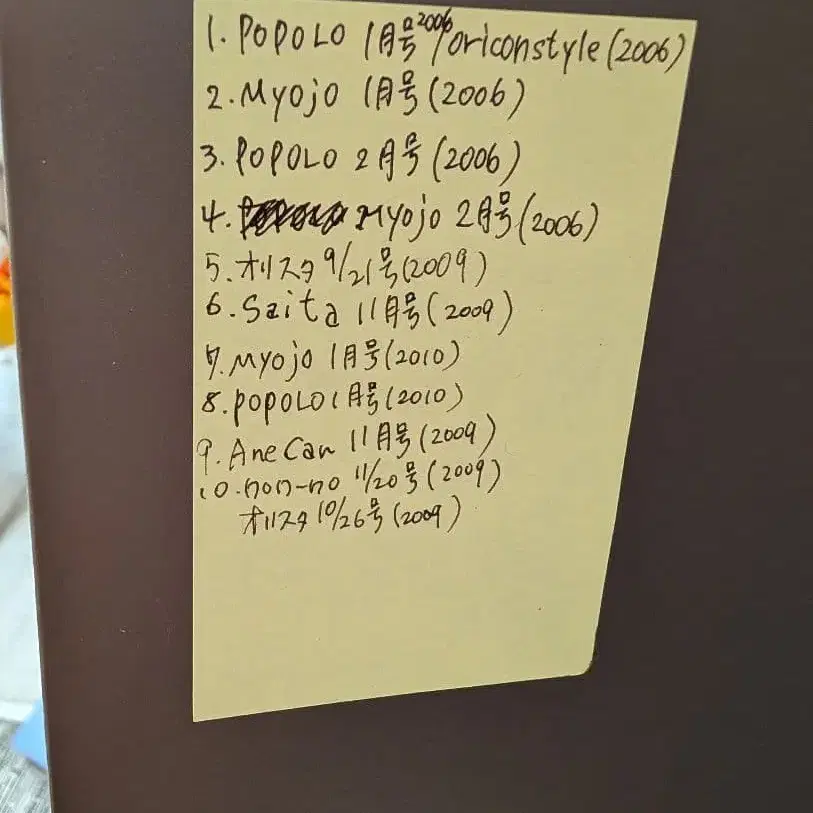 1. POPOLO 1月号2006/oriconstyle(2006)
2. Myojo 1月号(2006)
3. POPOLO 2月号(2006)
4. Myojo 2月号(2006)
5. オリスタ 9/21号(2009)
6. Saita 11月号(2009)
7. Myojo 1月号(2010)
8. POPOLO 1月号(2010)
9. AneCan 11月号(2009)
10. non-no 11/20号(2009)
オリスタ 10/26号(2009)